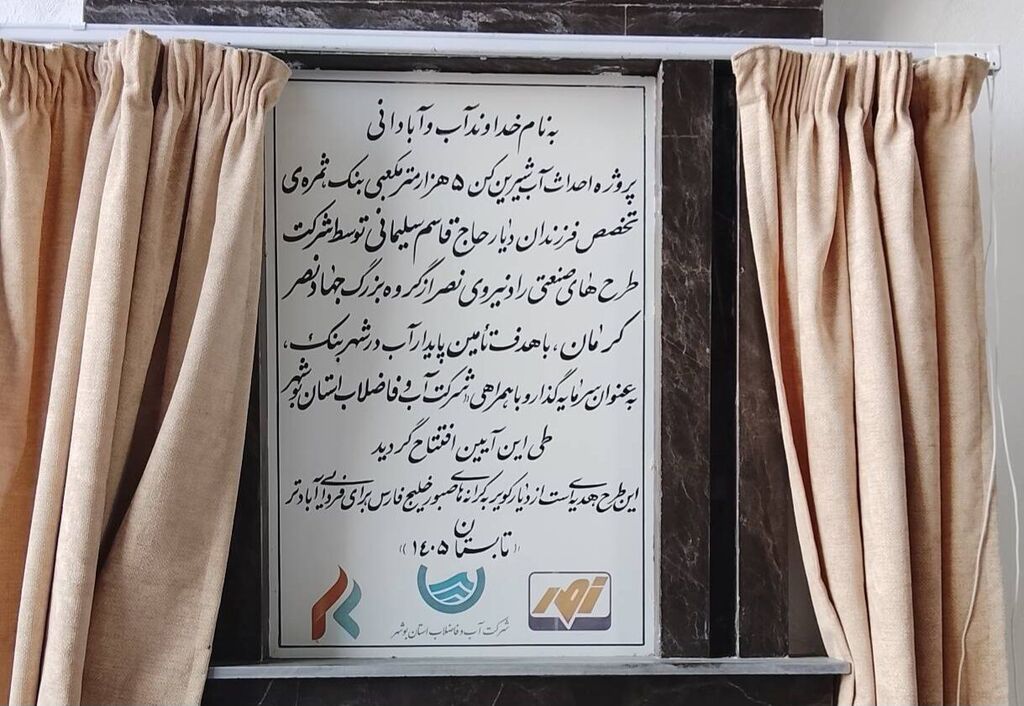 به نام خداوند آب و آبادانی
پروژه احداث آب شیرین کن ۵ هزار متر مکعبی بنک، ثمره‌ی
تخصص فرزندان دیار حاج قاسم سلیمانی توسط شرکت
طرح های صنعتی راد نیروی نصر از گروه بزرگ جهاد نصر
کرمان، با هدف تأمین پایدار آب در شهر بنک،
به عنوان سرمایه گذار و با همراهی «شرکت آب و فاضلاب استان بوشهر
طی این آیین افتتاح گردید
این طرح هدیه‌ای است از دیار کویر به کرانه های صبور خلیج فارس برای فردایی آبادتر
«تابستان ۱۴۰۵»
شرکت آب و فاضلاب استان بوشهر